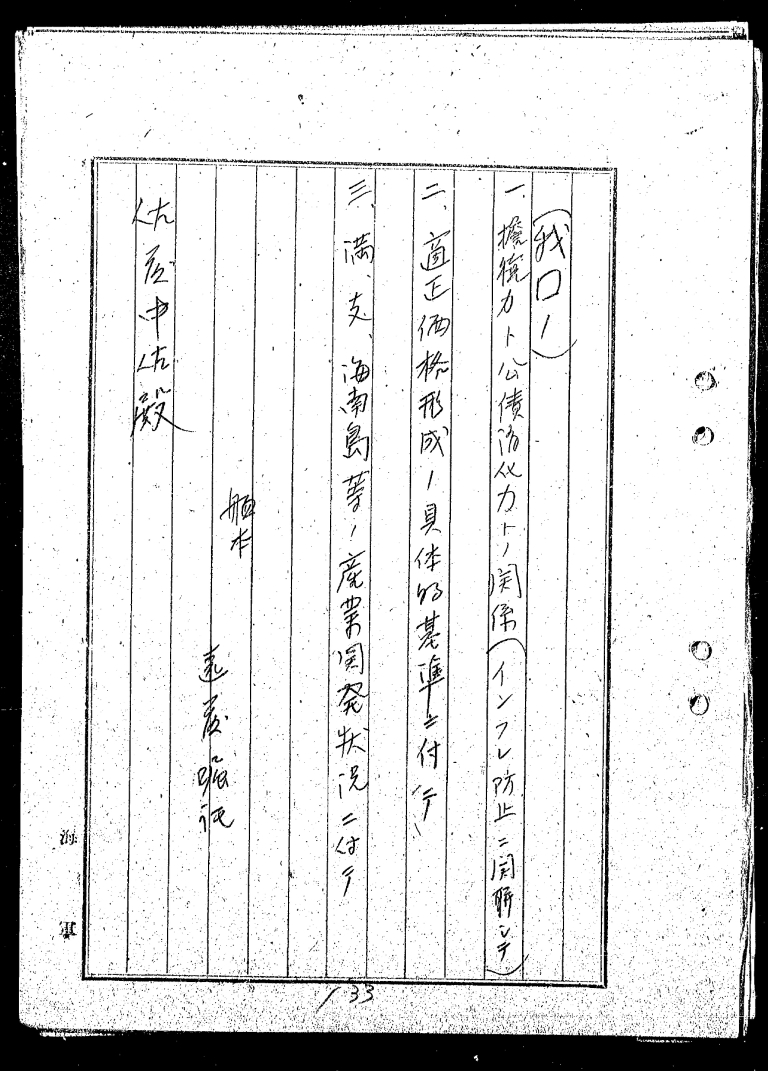 (我国ノ)
一、担税力ト公債消化力トノ関係(インフレ防止ニ関聯シテ)
二、適正価格形成ノ具体的基準ニ付テ
三、満、支、海南島等ノ産業開発状況ニ付テ
艦本
遠藤嘱託
佐藤中佐殿
海軍
133